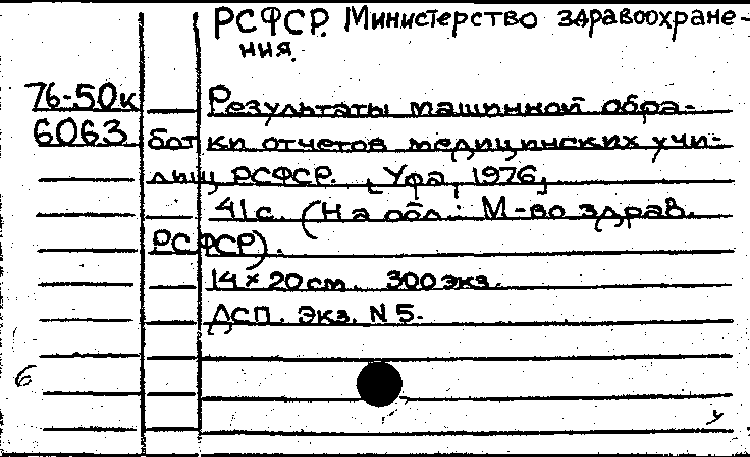 РСФСР. Министерство здравоохране-
ния.
76-50к Результаты машинной обра-
6063 ботки отчетов медицинских учи-
лищ РСФСР. [Уфа, 1976]
41 с. (На обл.: М-во здрав.
РСФСР).
14 × 20 см. 300 экз.
ДСП. Экз. N 5.
б
у